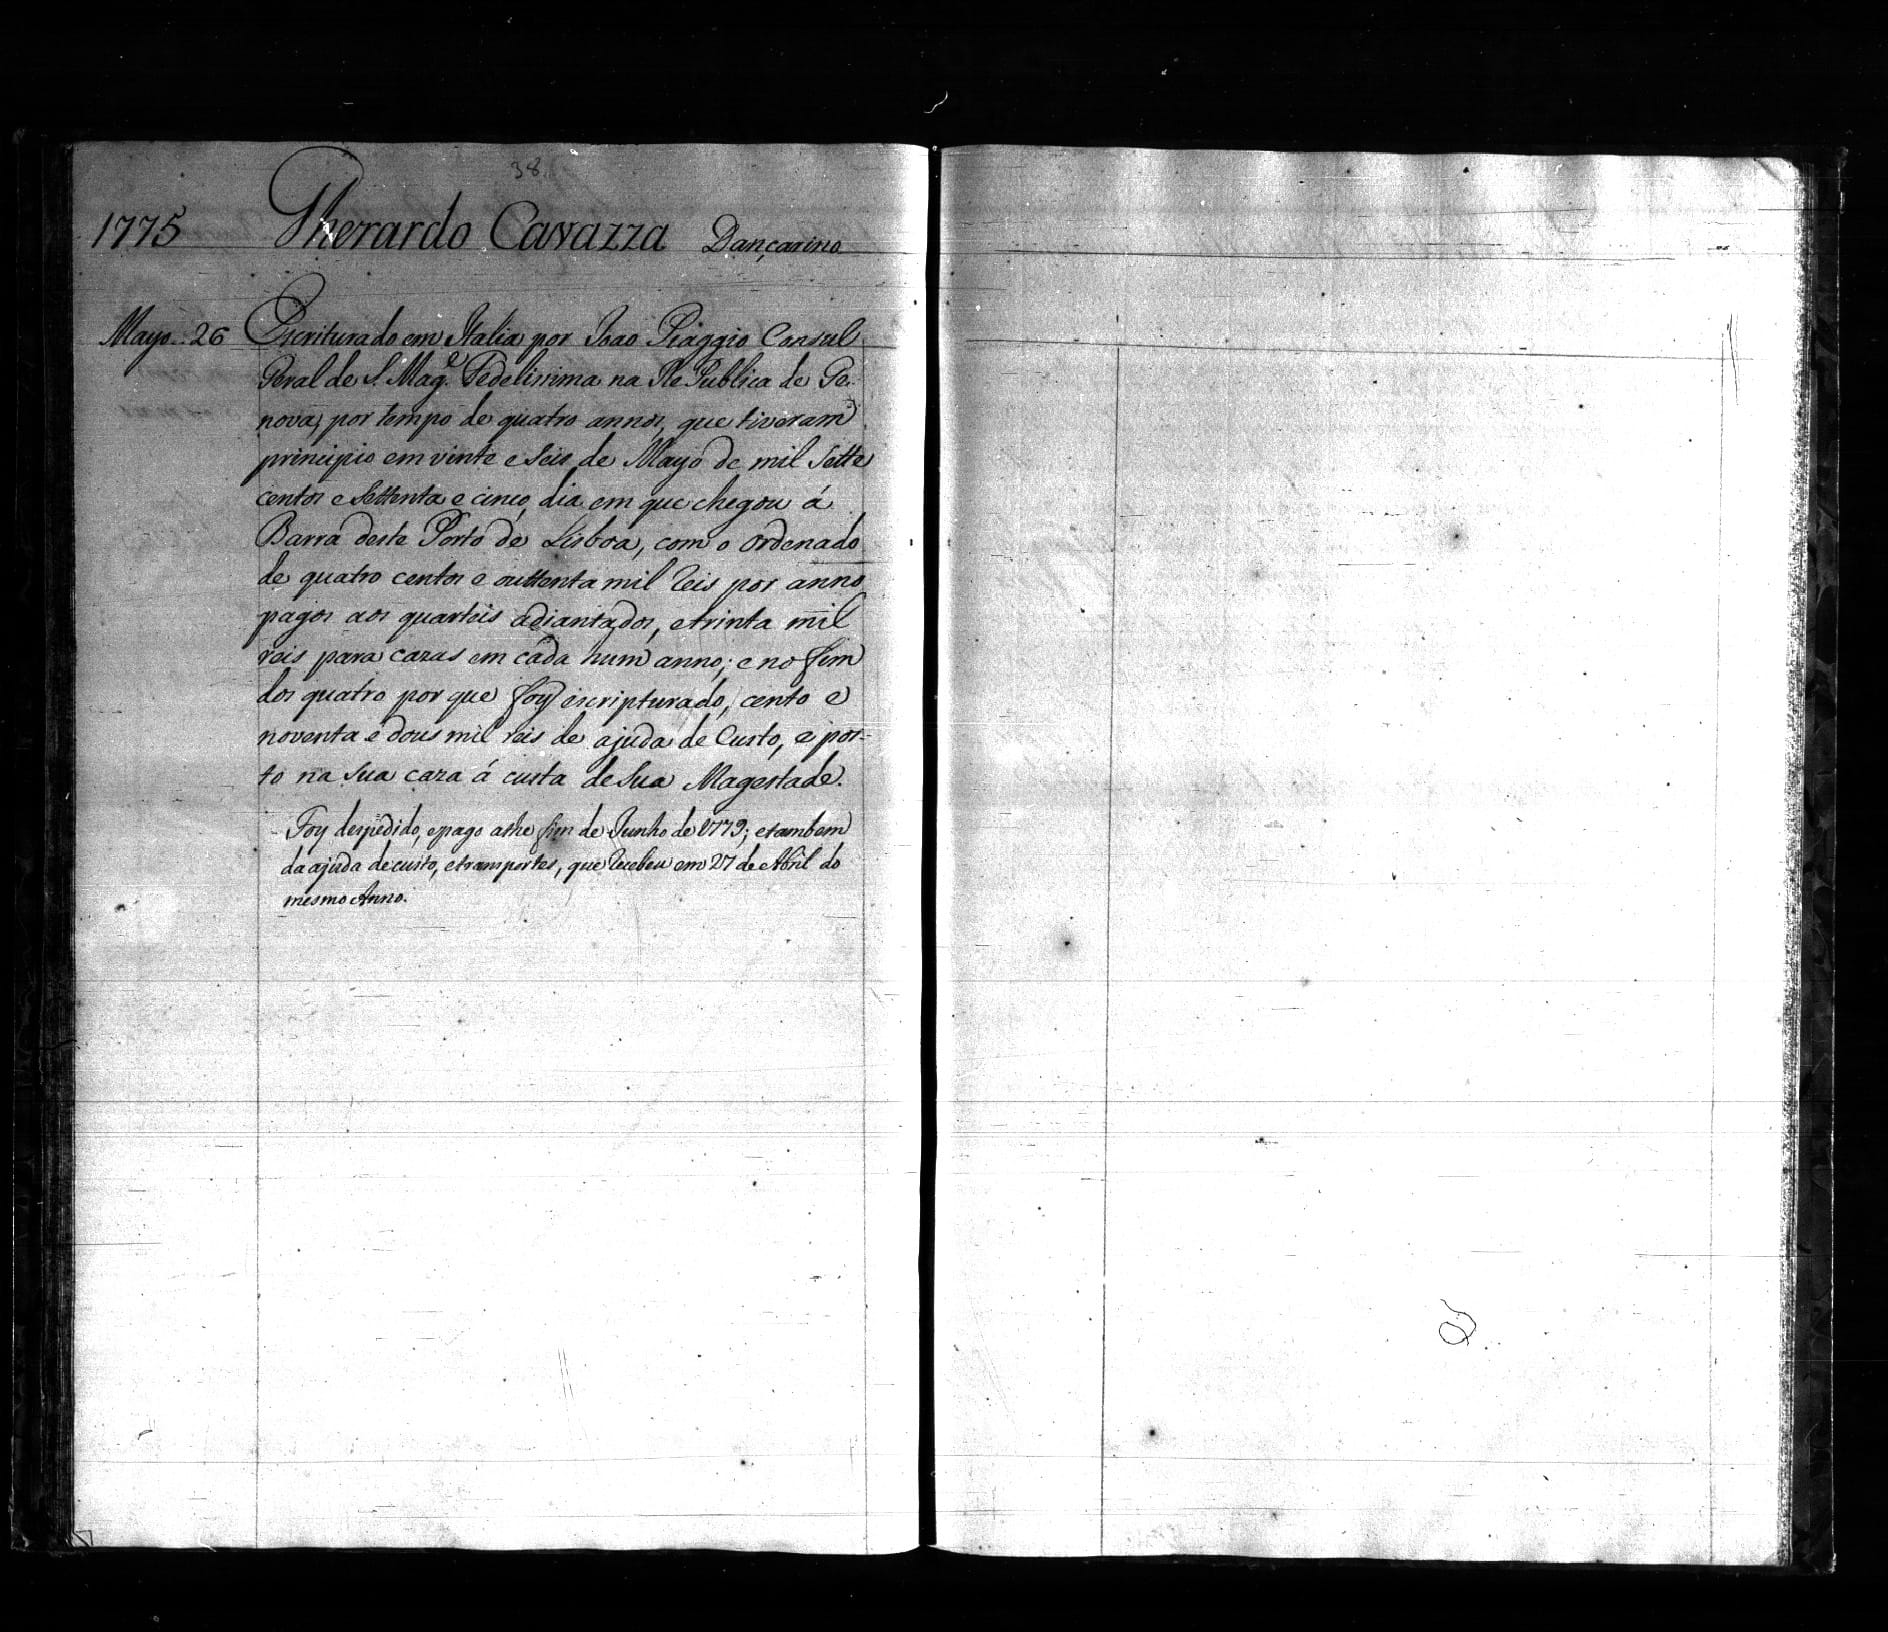 38.
1775 Gherardo Cavazza Dançarino
Mayo 26 Escriturado em Italia por Joao Piaggio Consul
Geral de S. Mag.e Fedelissima na RePublica de Ge-
nova, por tempo de quatro annos, que tiveram
principio em vinte e seis de Mayo de mil sette
centos e settenta e cinco, dia em que chegou á
Barra deste Porto de Lisboa, com o ordenado
de quatro centos e outtenta mil reis por anno
pagos aos quarteis adiantados, e trinta mil
reis para cazas em cada hum anno; e no fim
dos quatro por que foy escripturado, cento e
noventa e dous mil reis de ajuda de Custo, e pos-
to na sua caza á custa de Sua Magestade.
Foy despedido, e pago athe fim de Junho de 1779; e tambem
da ajuda de custo, e transportes, que recebeu em 27 de Abril do
mesmo Anno.